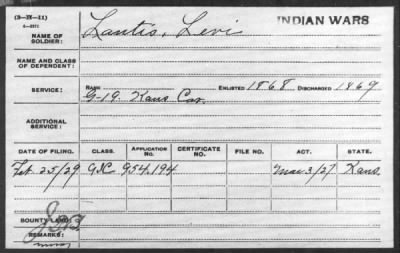 (3-IX-11) INDIAN WARS
NAME OF SOLDIER: Lantis, Levi
NAME AND CLASS OF DEPENDENT:
SERVICE: RANK ENLISTED 1868 DISCHARGED 1869
G-19. Kans Cav.
ADDITIONAL SERVICE:
DATE OF FILING. CLASS. APPLICATION NO. CERTIFICATE NO. FILE NO. ACT. STATE.
Feb. 25/29 954,194 Mar 3/27 Kans.
BOUNTY LAND:
REMARKS: